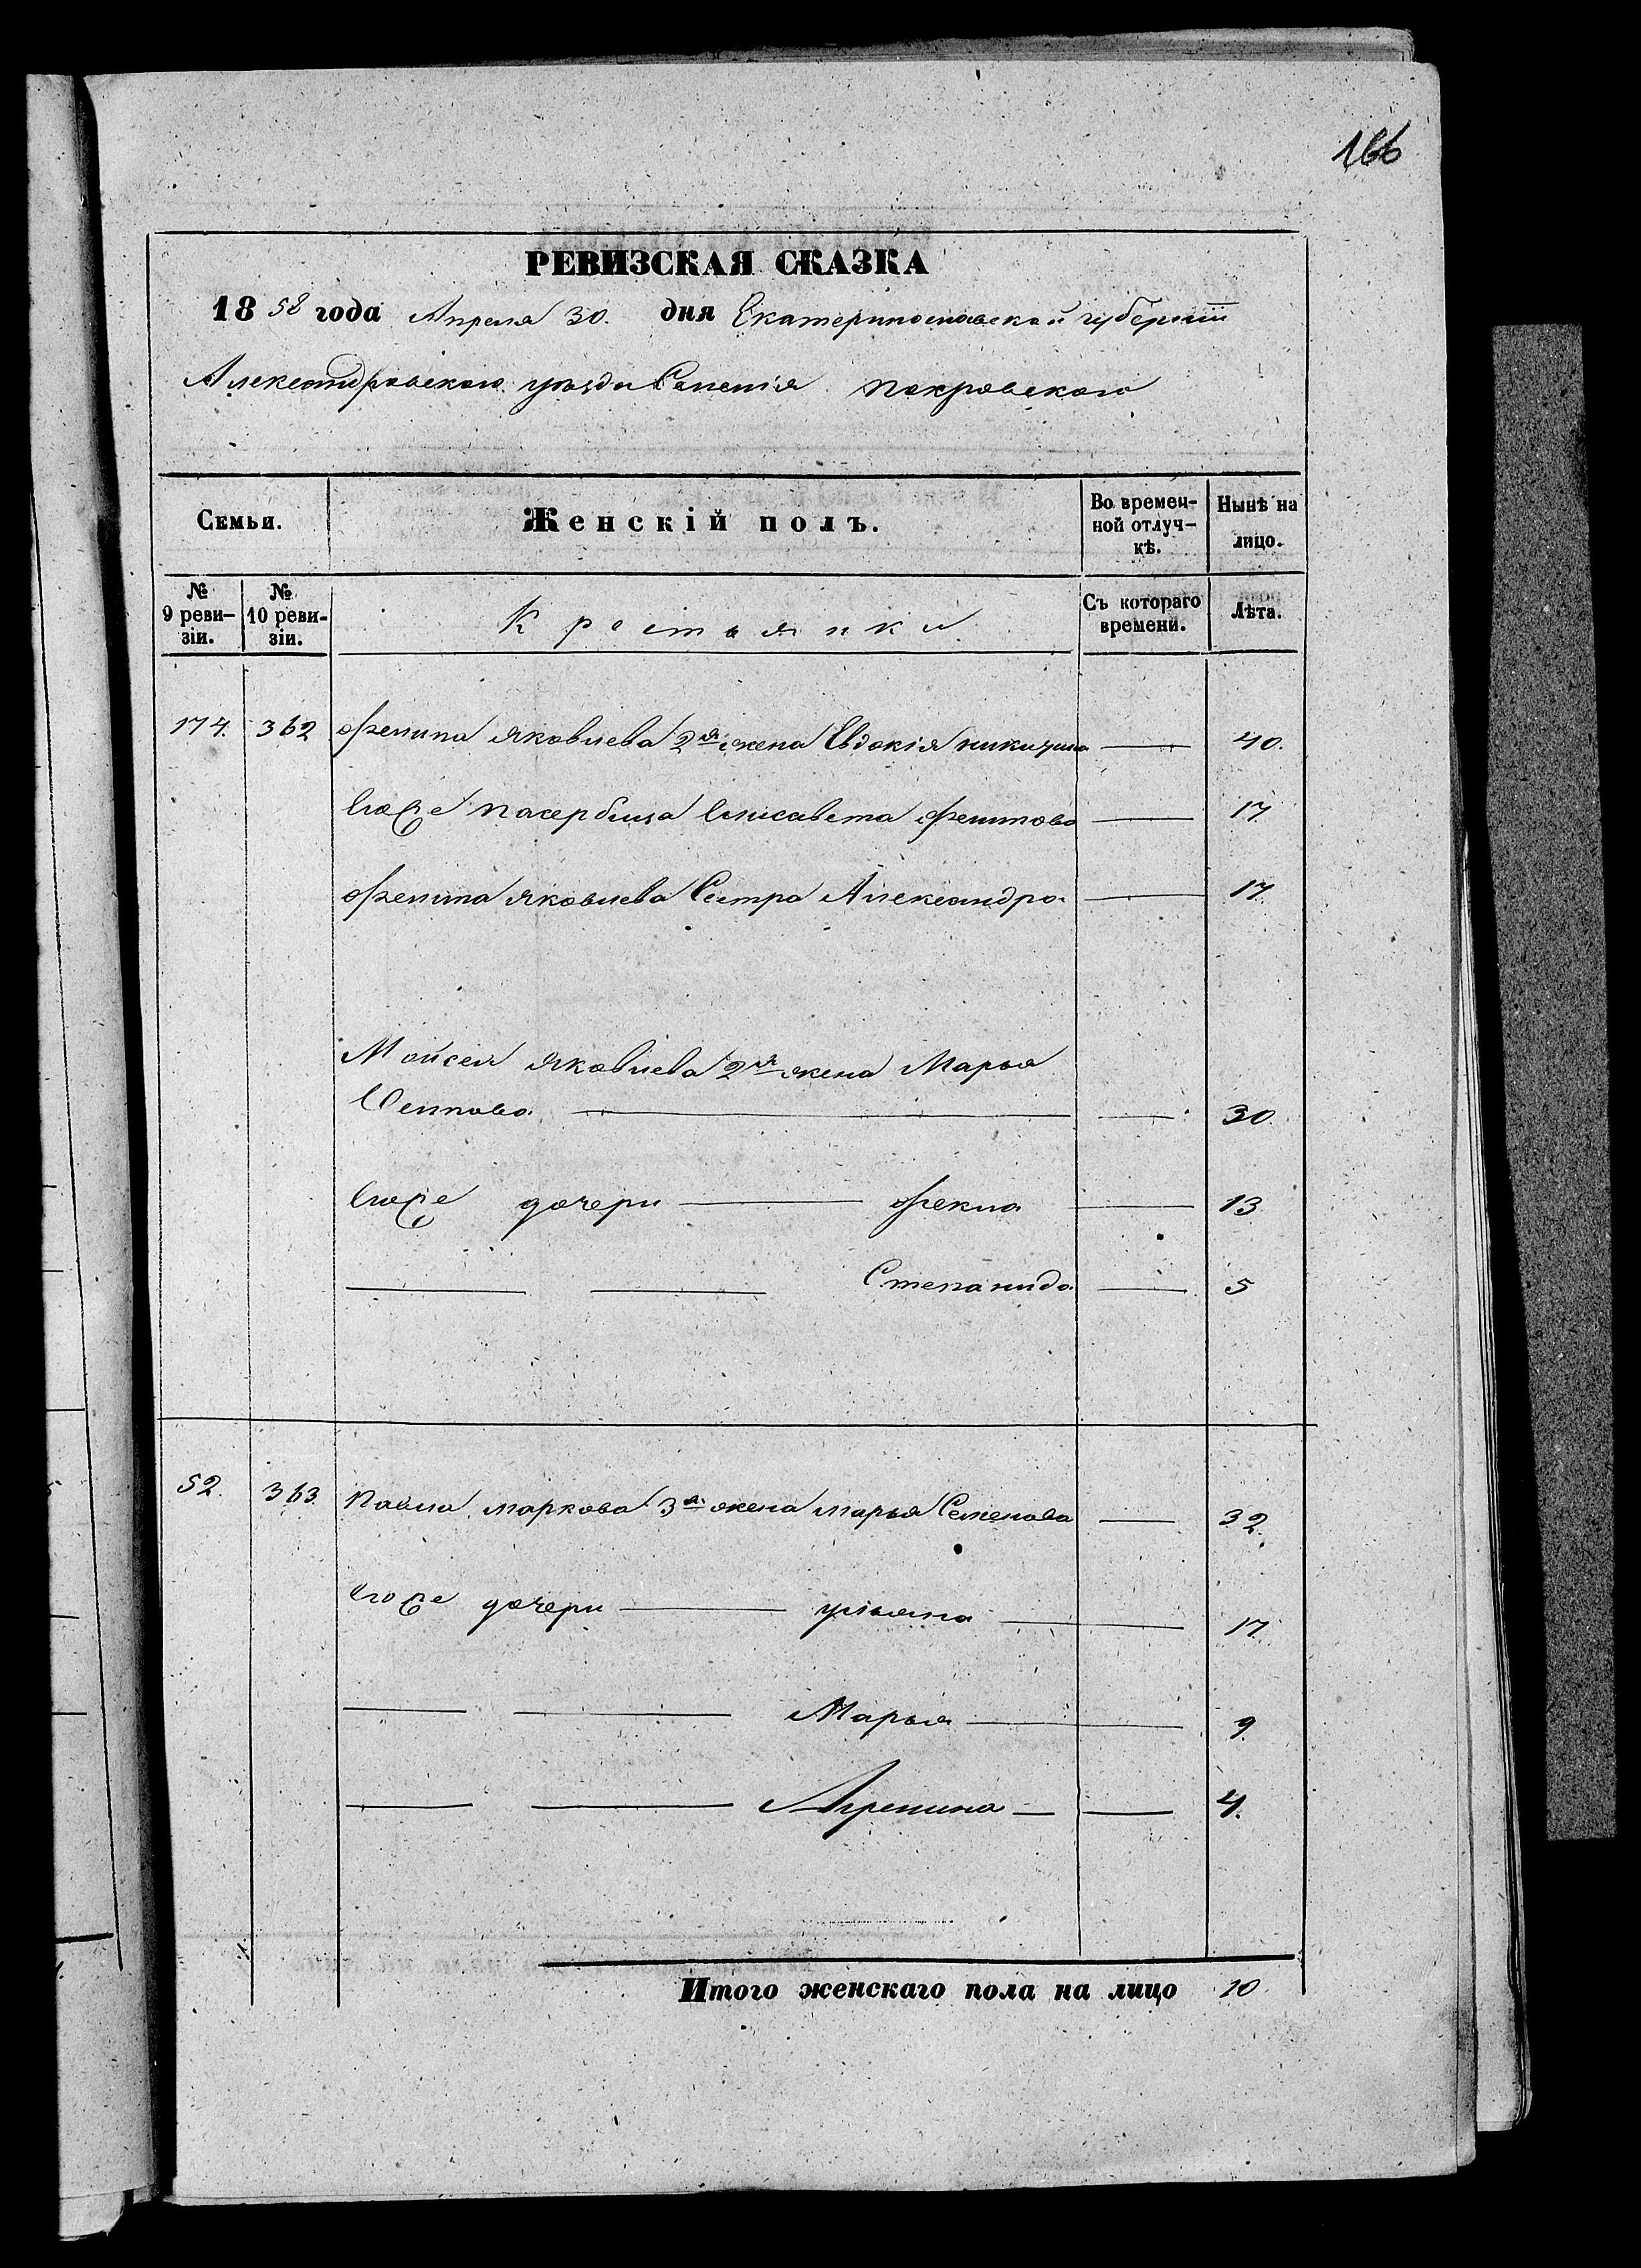 166
РЕВИЗСКАЯ СКАЗКА
18 58 года Апреля 30. дня Екатеринославской губернiи
Александровскаго уезда Селенiя Покровскаго
Семьи.
Женскiй полъ.
Во времен-
ной отлуч-
кѣ.
Нынѣ на
лицо.
№
9 реви-
зiи.
№
10 реви-
зiи.
Крестьянки
Съ котораго
времени.
Лѣта.
174. 362 Филипа Яковлева 2я жена Евдокiя Никитина — 40.
Егоже пасербица Елисавета Филипова — 17
Филипа Яковлева Сестра Александра — 17
Мойсея Яковлева 2я жена Марья
Осипова — — 30.
Егоже дочери — Фекла — 13
— — Степанида — 5
52. 363. Павла Маркова 3я жена Марья Семенова — 32.
Егоже дочери — Ульяна — 17
— — Марья — 9.
— — Агрепина — — 4.
Итого женскаго пола на лицо 10.